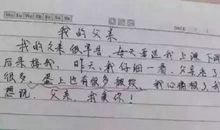 我的父亲
我的父亲很辛苦,每天要送我上课,下课
后来接我,昨天我仔细一看,父亲老了
很多,脸上也有很多皱纹,我心
想说,父亲,我爱你!